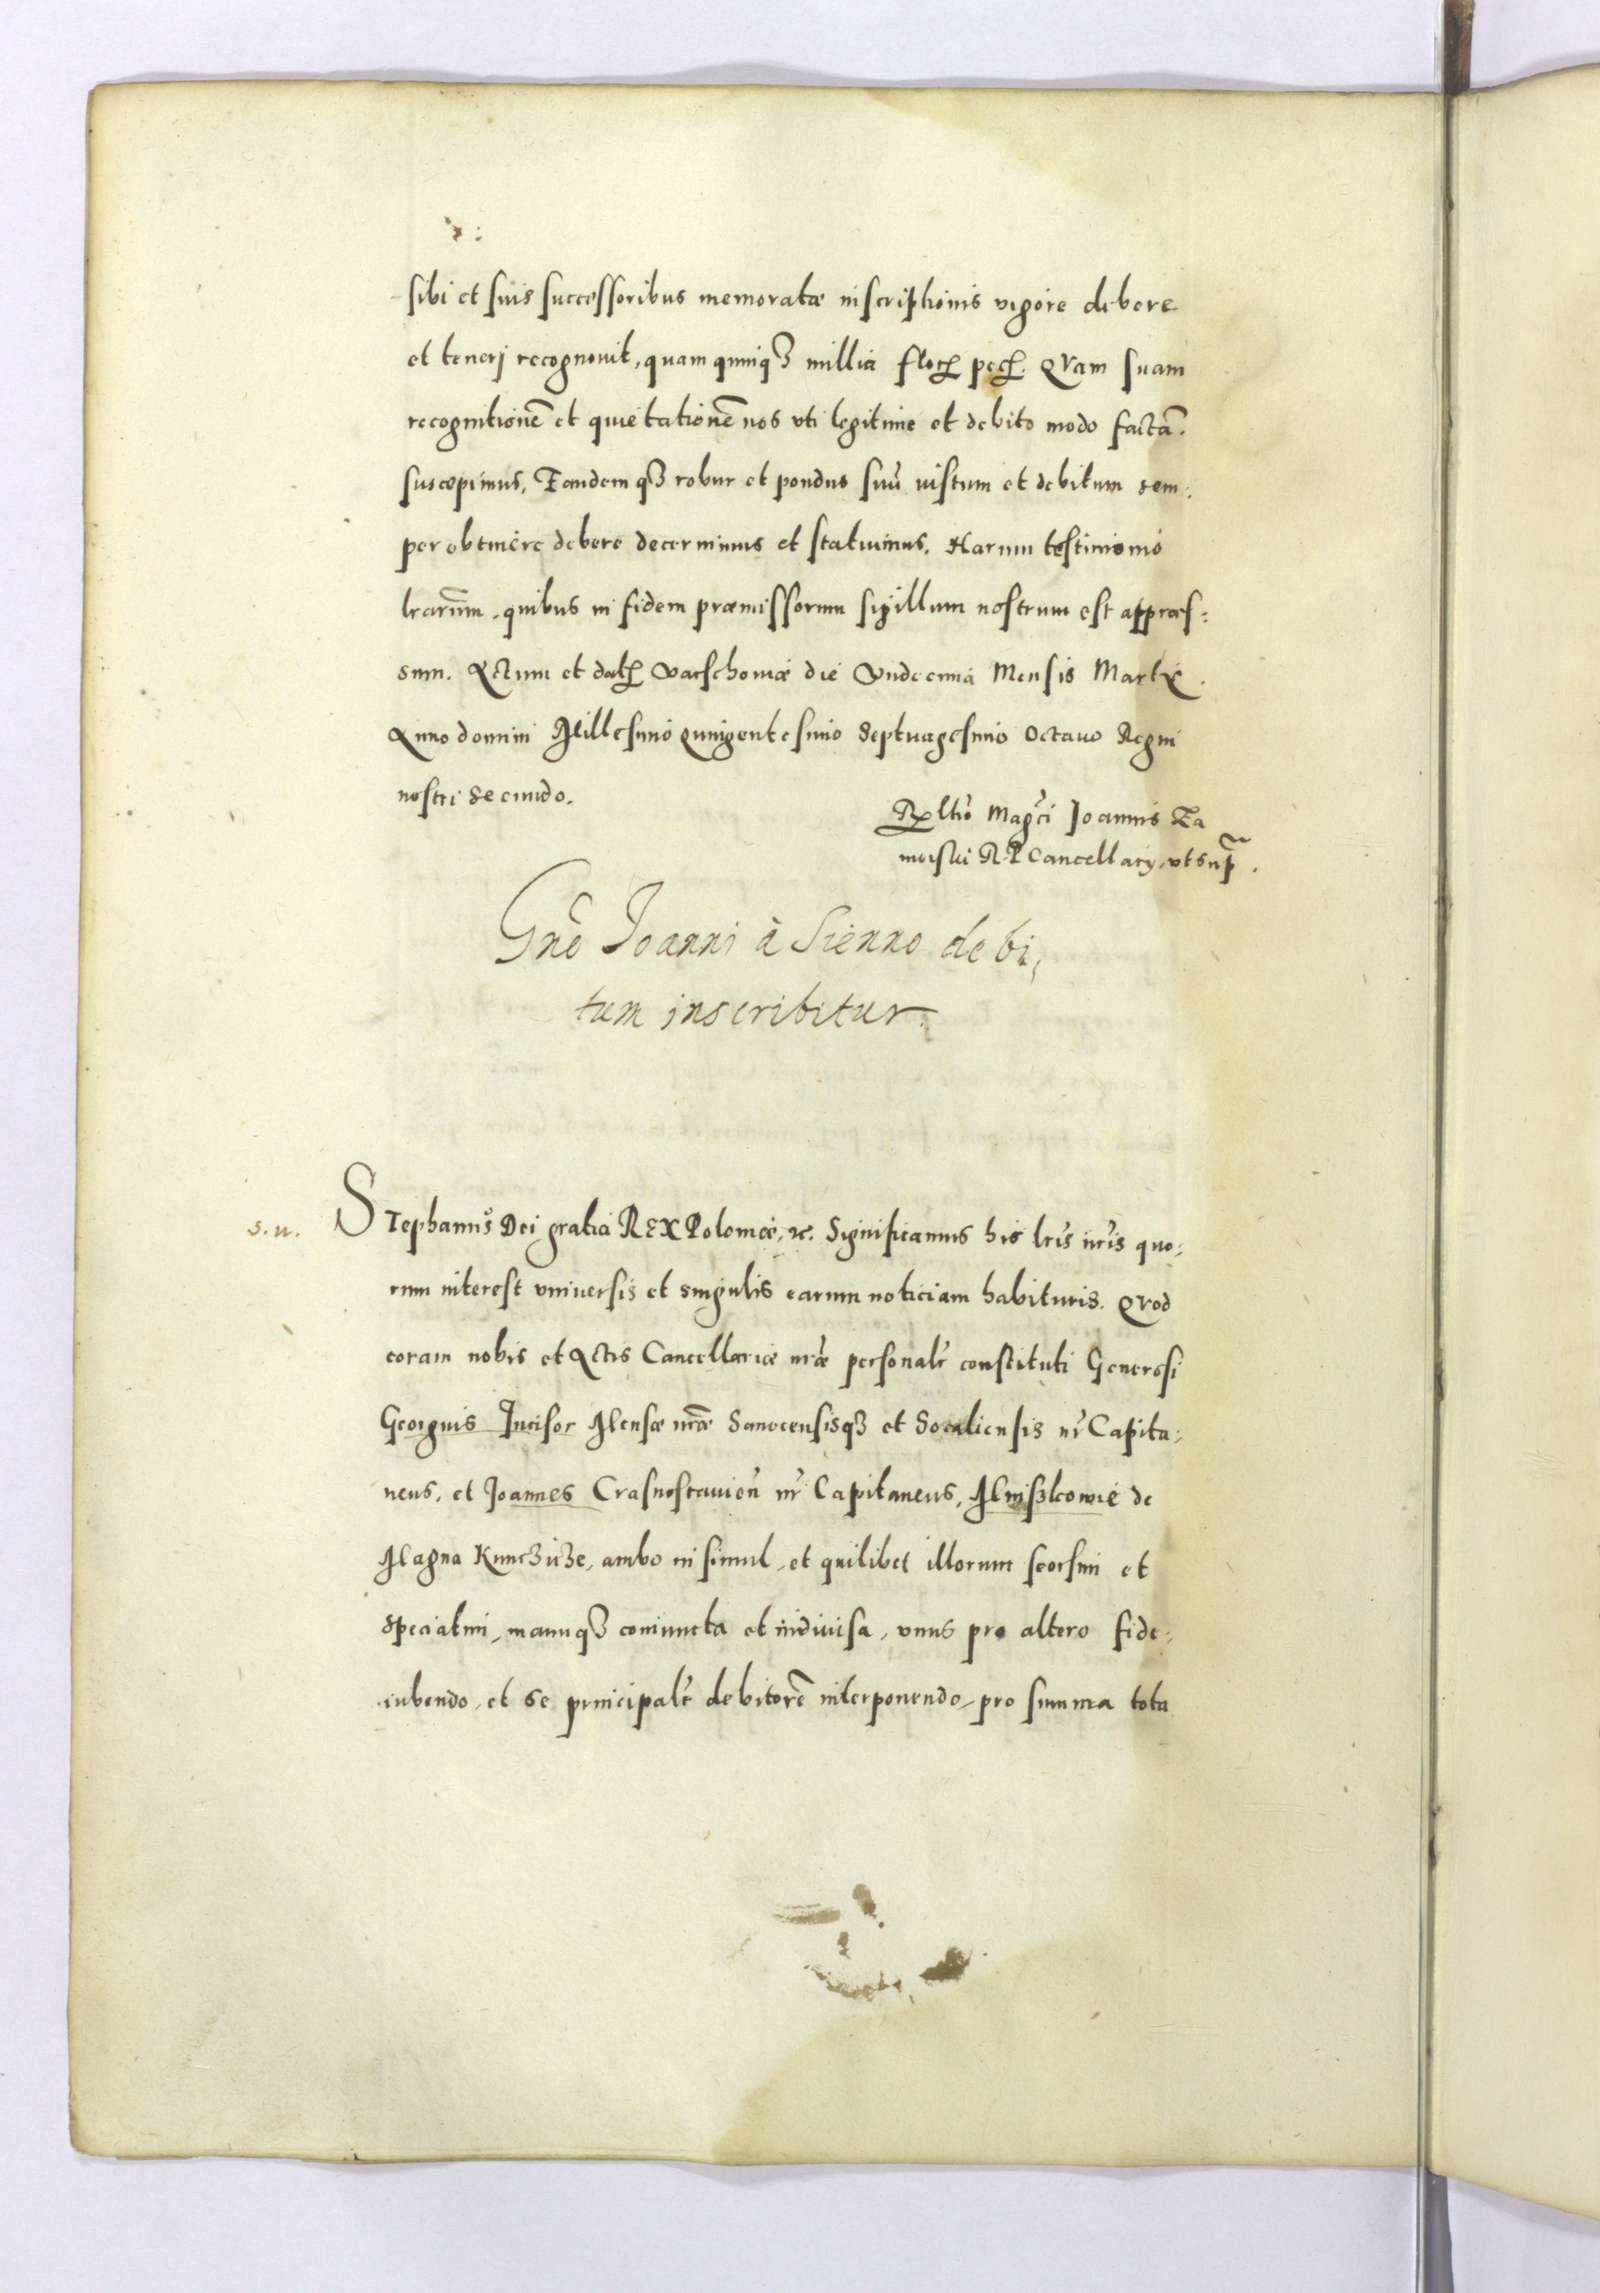 sibi et suis successoribus memoratæ inscriptionis vigore debere
et tenerj recognovit, quam quinqȝ millia floꝝ pecꝝ. Qvam suam
recognitionē et quietationē nos vti legitime et debito modo factā.
suscepimus, Eandem qȝ robur et pondus suū iustum et debitum sem:
per obtinere debere decernimus et statuimus. Harum testimonio
lrarum̄, quibus in fidem præmissorum sigillum nostrum est appres:
sum. Actum et datꝝ Varschoviæ die Vndecima Mensis Martii.
Anno domini Millesimo quingentesimo Septuagesimo Octauo Regni
nostri secundo.
Rltio Magci Joannis Za
moiski R. P. Cancellarij, vt sup̄.
Gnō Joanni à Sienno debi,
tum inscribitur.
s. n.
STephanus Dei gratia REX Poloniæ, ꝛc. Significamus his lris nris quo:
rum interest vniuersis et singulis earum noticiam habituris. Qvod
coram nobis et Actis Cancellariæ nrae personalr constituti Generosi
Georgius Incisor Mensæ nrae Sanocensisqȝ et Socaliensis nr Capita:
neus, et Joannes Crasnostauien̄ nr Capitaneus, Mniszkowie de
Magna Kunczicze, ambo in simul, et quilibet illorum seorsim et
speciatim, manuqȝ coniuncta et indiuisa, vnus pro altero fide:
iubendo, et se principalr debitorē interponendo, pro summa tota